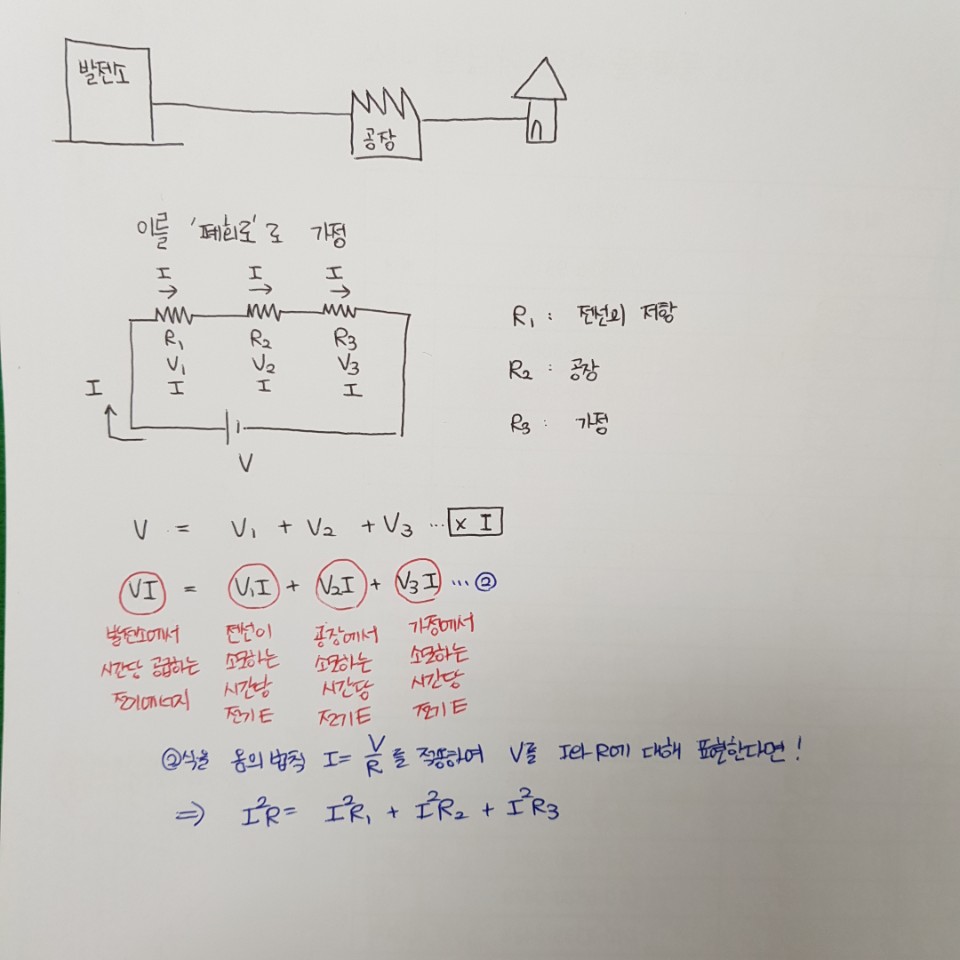 발전소
공장
이를 '폐회로'로 가정
I I I
R₁ R₂ R₃
V₁ V₂ V₃
I I I
I
V
R₁ : 전선의 저항
R₂ : 공장
R₃ : 가정
V = V₁ + V₂ + V₃ ... × I
VI = V₁I + V₂I + V₃I ... ②
발전소에서 시간당 공급하는 전기에너지
전선이 소모하는 시간당 전기E
공장에서 소모하는 시간당 전기E
가정에서 소모하는 시간당 전기E
②식을 옴의 법칙 I = V/R 를 적용하여 V를 I와 R에 대해 표현한다면!
⇒ I²R = I²R₁ + I²R₂ + I²R₃